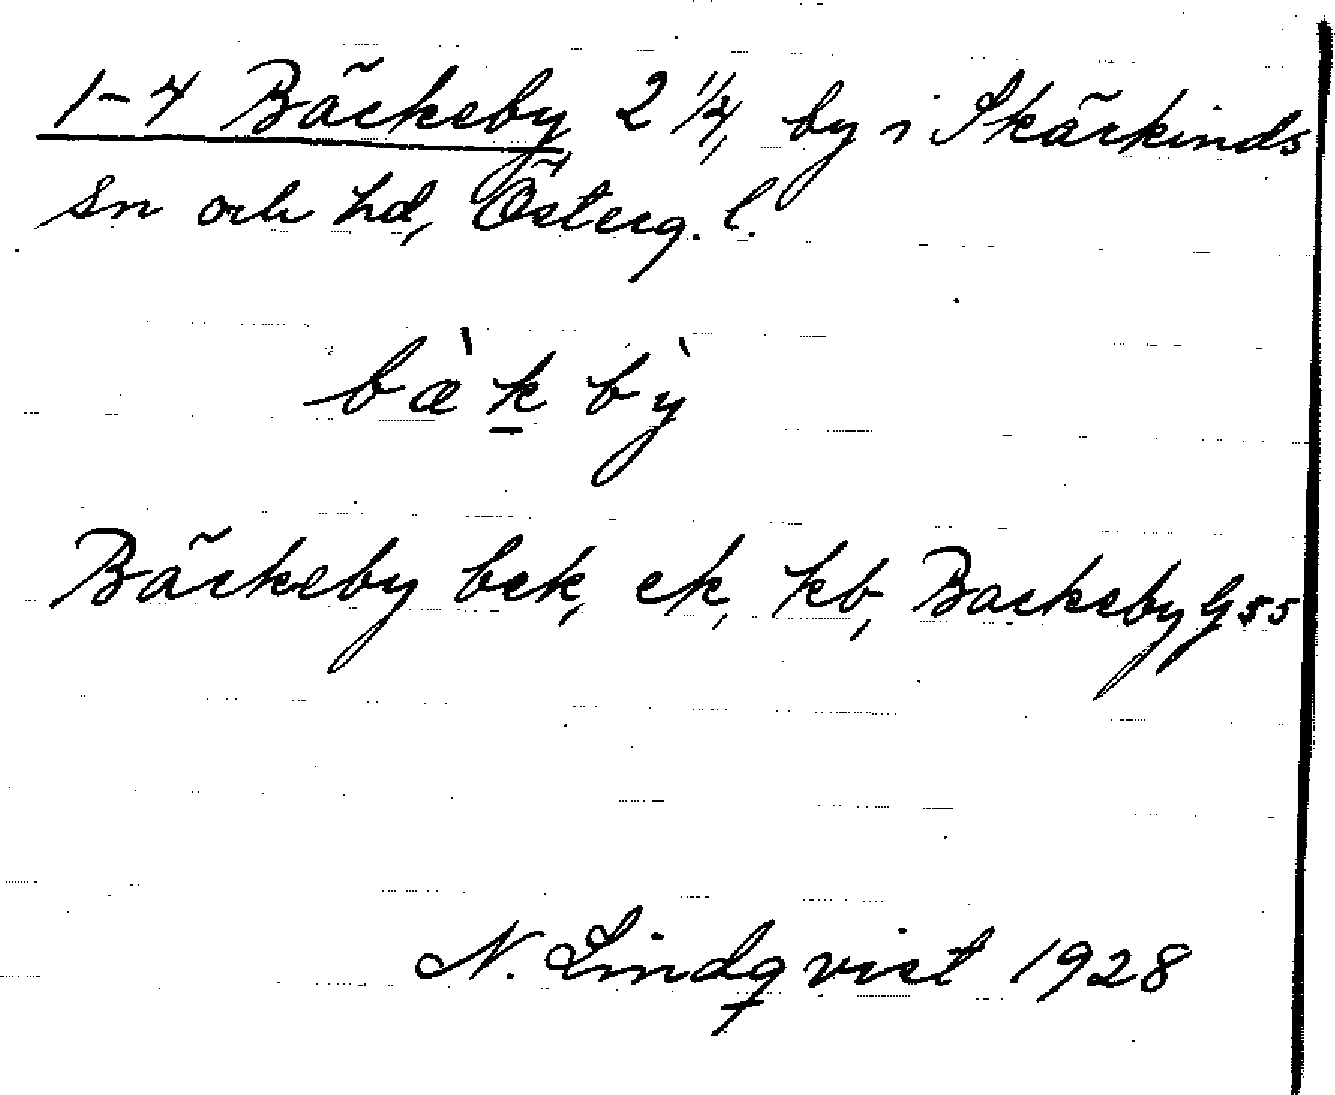 1-4 Bäckeby 2 1/4, by i Skärkinds
sn och hd, Österg. l.
bæ̀k bỳ
Bäckeby bek, ek, kb, Backeby G 55
N. Lindqvist 1928